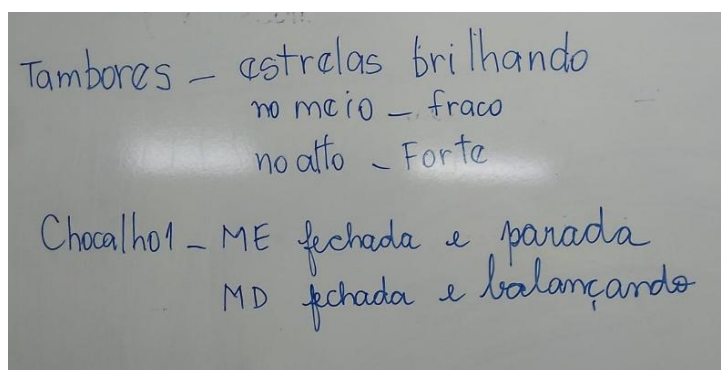 Tambores - estrelas brilhando
no meio - fraco
no alto - Forte
Chocalho1 - ME fechada e parada
MD fechada e balançando